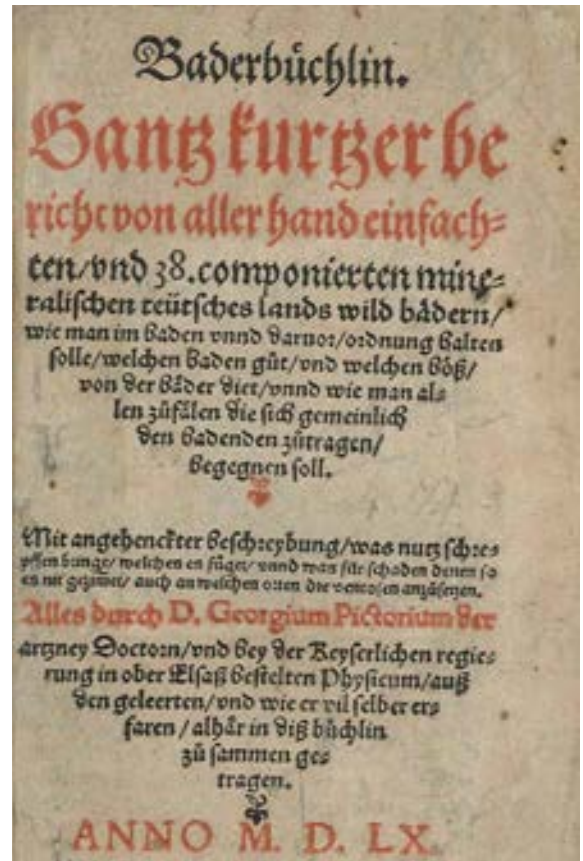 Baderbůchlin.
Gantz kurtzer be
richt von aller hand einfach⸗
ten/vnd 38. componierten mine⸗
ralischen teütsches lands wild bådern/
wie man im baden vnnd daruor/ordnung halten
solle/welchen baden gůt/vnd welchen bôß/
von der båder diet/vnnd wie man al⸗
len zůfålen die sich gemeinlich
den badenden zůtragen/
begegnen soll.
Mit angehenckter beschreybung/was nutz schre⸗
pffen bringe/ welchen es fůget/ vnnd was fůr schaden denen so
es nit gezimet/ auch an welchen orten die ventosen anzůsetzen.
Alles durch D. Georgium Pictorium der
artzney Doctorn/vnd bey der Keyserlichen regie⸗
rung in ober Elsaß bestelten Physicum/auß
den geleerten/vnd wie er vil selber er⸗
faren / alhår in diß bůchlin
zů sammen ge⸗
tragen.
ANNO M. D. LX.